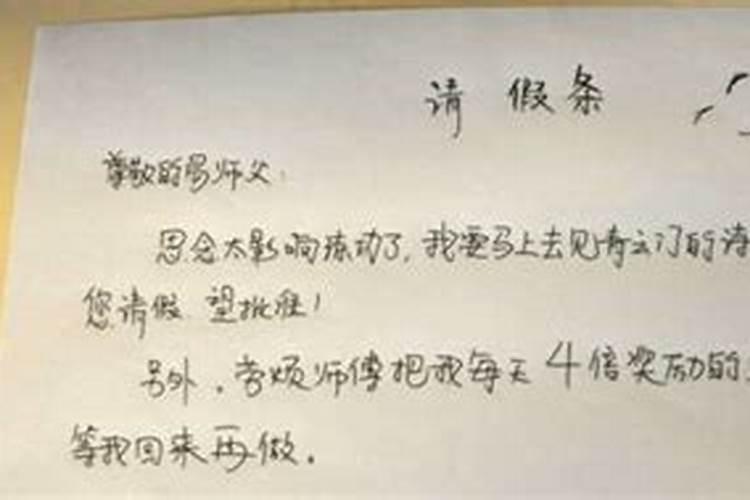 请假条
尊敬的易师父:
思念太影响练功了,我要马上去见青云门的
您请假 望批准!
另外,劳烦师傅把我每天4倍奖励的
等我回来再做。